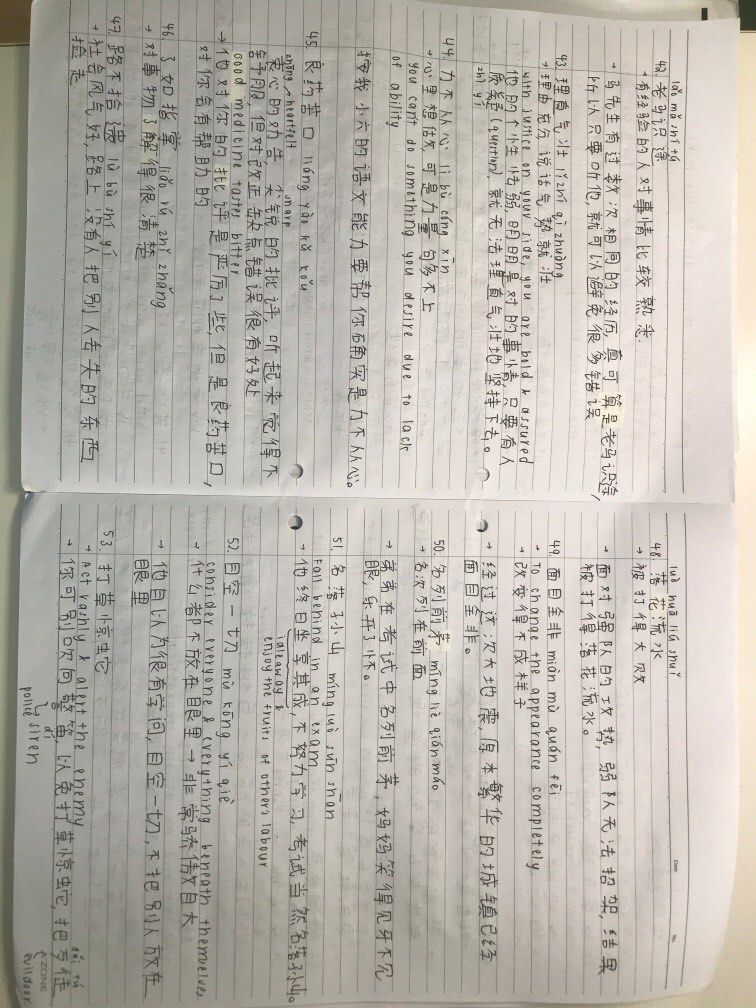 lǎo mǎ shí tú
42. 老马识途
→ 有经验的人对事情比较熟悉.
→ 马先生有过数次相同的经历, 真可算是老马识途,
所以只要听他, 就可以避免很多错误
43. 理直气壮 lǐ zhí qì zhuàng
→ 理由充分, 说话气势就壮
with justice on your side, you are bold & assured
他的个小生怯弱, 明明是对的事情, 只要有人
质疑 (question), 就无法理直气壮地坚持下去。
zhì yí
44. 力不从心 lì bù cóng xīn
→ 心里想做, 可是力量够不上
you can't do something you desire due to lack
of ability
按我小六的语文能力要帮你确实是力不从心。
45. 良药苦口 liáng yào kǔ kǒu
zhōng → heartfelt
衷心的劝告, 尖锐的批评, 听起来觉得不
sharp
舒服, 但对改正缺点错误很有好处
good medicine tastes bitter
→ 他对你的批评是严厉了些, 但是良药苦口,
对你会有帮助的
46. 了如指掌 liǎo rú zhǐ zhǎng
→ 对事物了解得很清楚
47. 路不拾遗 lù bù shí yí
→ 社会风气好, 路上没有人把别人丢失的东西
捡走
Date No.
luò huā liú shuǐ
48. 落花流水
→ 被打得大败
→ 面对强队的攻势, 弱队无法招架, 结果
被打得落花流水。
49. 面目全非 miàn mù quán fēi
→ To change the appearance completely
→ 改变得不成样子
→ 经过这次大地震, 原本繁华的城镇已经
面目全非。
50. 名列前茅 míng liè qián máo
→ 名次列在前面
→ 弟弟在考试中名列前茅, 妈妈笑得见牙不见
眼, 乐开了怀。
51. 名落孙山 míng luò sūn shān
Fall behind in an exam
→ 他终日坐享其成, 不努力学习, 考试当然名落孙山。
enjoy the fruits of others labour
52. 目空一切 mù kōng yí qiè
consider everyone & everything beneath themselves
→ 什么都不放在眼里 → 非常骄傲自大
→ 他自以为很有学问, 目空一切, 不把别人放在
眼里
53. 打草惊蛇
→ Act rashly & alert the enemy
→ 你可别鸣响警笛, 以免打草惊蛇, 把歹徒
dí
police siren
dǎi tú
evildoer
ZONE